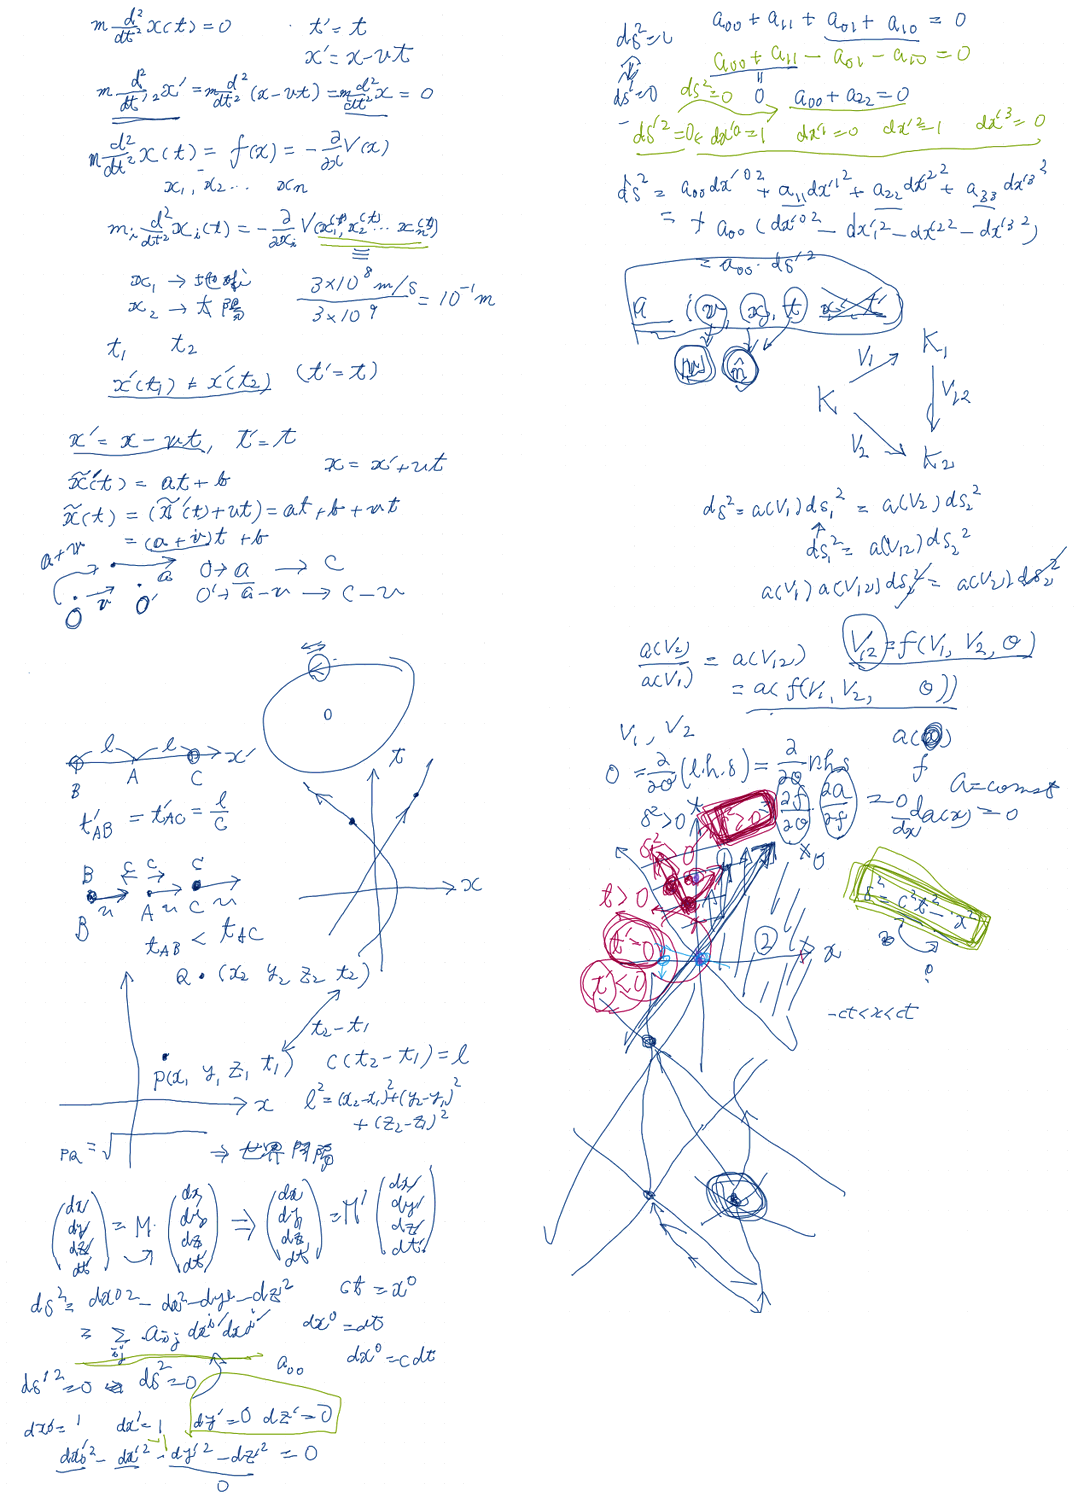 m d²/dt² x(t) = 0
t' = t
x' = x - vt
m d²/dt'² x' = m d²/dt² (x - vt) = m d²/dt² x = 0
m d²/dt² x(t) = f(x) = - ∂/∂x V(x)
x₁, x₂ ... xₙ
mᵢ d²/dt² xᵢ(t) = - ∂/∂xᵢ V(x₁(t), x₂(t) ... xₙ(t))
x₁ → 地球
x₂ → 太陽
3×10⁸ m/s / 3×10⁹ = 10⁻¹ m
t₁ t₂
x'(t₁) ≠ x'(t₂) (t' = t)
x' = x - vt, t' = t
x = x' + vt
x̃'(t) = at + b
x̃(t) = (x̃'(t) + vt) = at + b + vt
= (a + v)t + b
a+v
a
O → a → c
O' → a - v → c - v
O v O'
O
l l x'
B A C
t'AB = t'AC = l/c
B c c C
B v A v C v
tAB < tAC
t
x
Q • (x₂ y₂ z₂ t₂)
t₂ - t₁
P(x₁ y₁ z₁ t₁)
c(t₂ - t₁) = l
x
l² = (x₂ - x₁)² + (y₂ - y₁)²
+ (z₂ - z₁)²
PQ = √ ⇒ 世界間隔
(dx' dy' dz' dt') = M (dx dy dz dt) ⇒ (dx dy dz dt) = M' (dx' dy' dz' dt')
ds² = dx⁰² - dx² - dy² - dz²
ct = x⁰
= Σij aij dxi' dxj'
dx⁰ = dt
dx⁰ = c dt
a₀₀
ds'² = 0 ⇔ ds² = 0
dx'₀ = 1 dx' = 1 dy' = 0 dz' = 0
dx'₀² - dx'² - dy'² - dz'² = 0
0
ds² = 0
a₀₀ + a₁₁ + a₀₁ + a₁₀ = 0
a₀₀ + a₁₁ - a₀₁ - a₁₀ = 0
ds'² = 0
ds² = 0 0 a₀₀ + a₂₂ = 0
ds'² = 0 dx'⁰ = 1 dx'¹ = 0 dx'² = 1 dx'³ = 0
ds² = a₀₀ dx'⁰² + a₁₁ dx'¹² + a₂₂ dx'²² + a₃₃ dx'³²
= + a₀₀ (dx'⁰² - dx'¹² - dx'²² - dx'³²)
= a₀₀ · ds'²
a (v, x, t x', t')
|v| n̂
K₁
V₁
K V₁₂
V₂
K₂
ds² = a(V₁) ds₁² = a(V₂) ds₂²
ds₁² = a(V₁₂) ds₂²
a(V₁) a(V₁₂) ds₂² = a(V₂) ds₂²
a(V₂)/a(V₁) = a(V₁₂)
V₁₂ = f(V₁, V₂, θ)
= a(f(V₁, V₂, θ))
V₁, V₂
0 = ∂/∂θ (l.h.s) = ∂/∂θ r.h.s
= ∂f/∂θ · ∂a/∂f = 0
f
a = const
d/dx a(x) = 0
s² > 0
s² = c²t² - x²
t > 0
t' = 0
t' < 0
① ②
x
-ct < x < ct